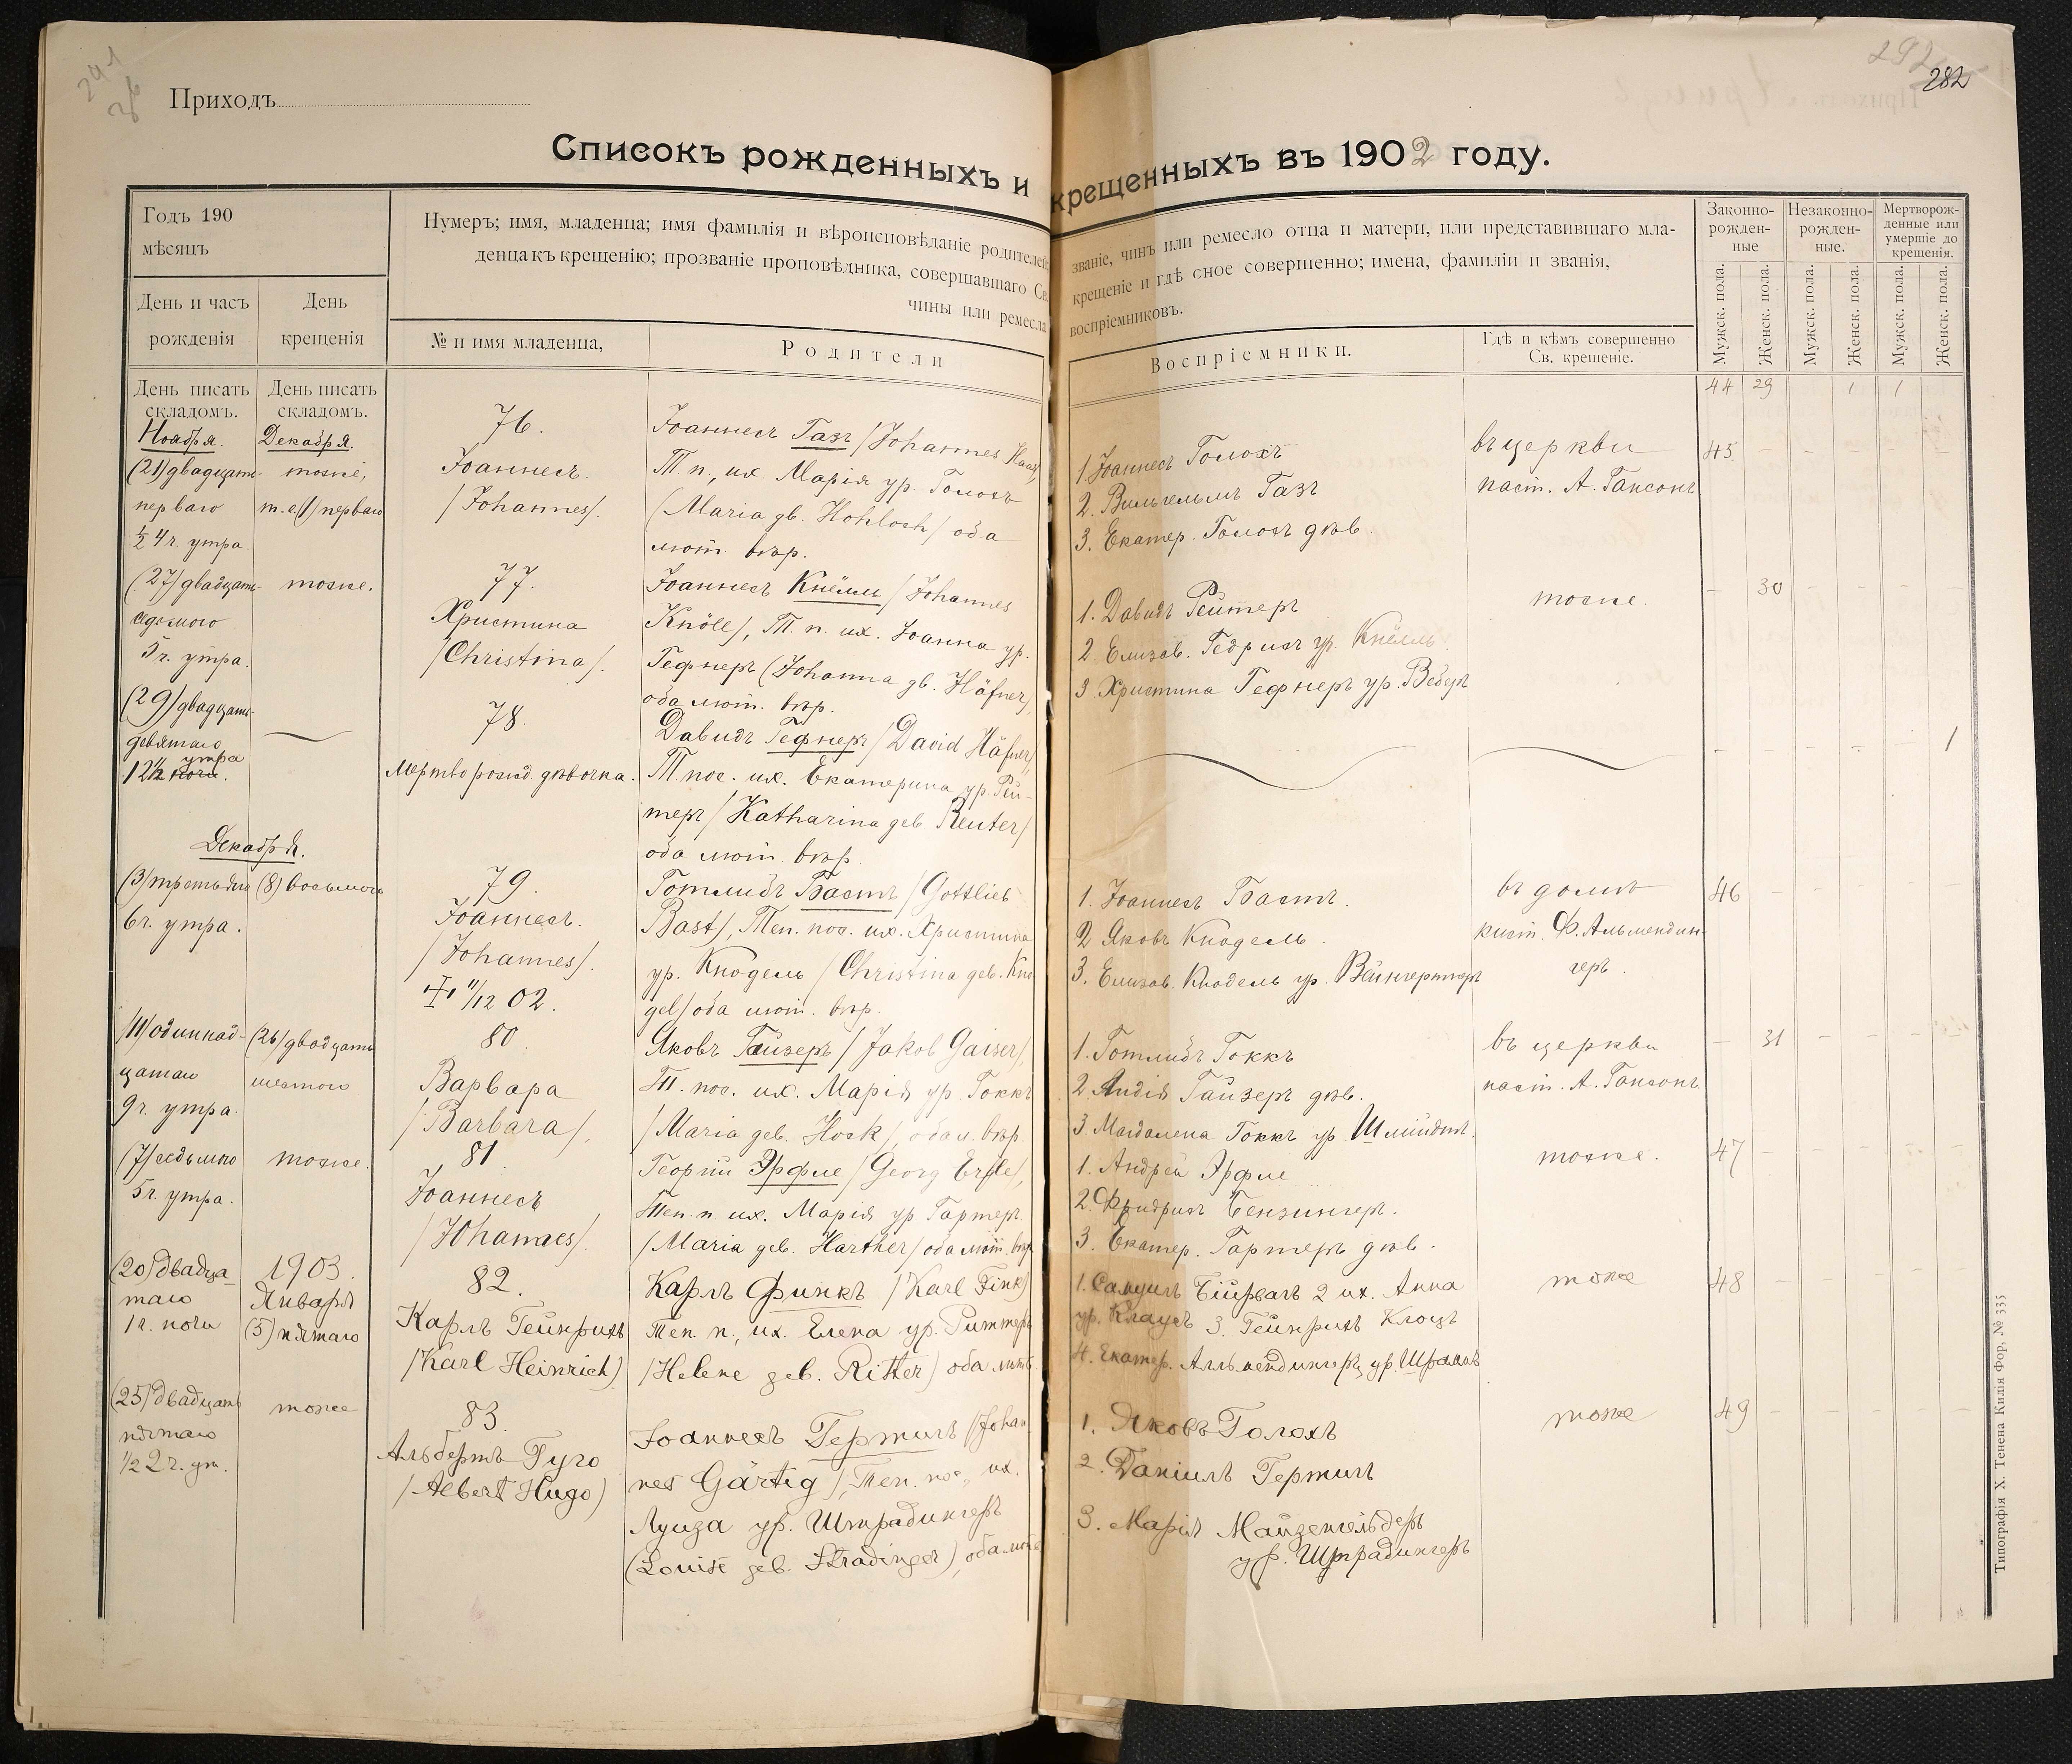 Приходъ
282
Списокъ рожденныхъ и крещенныхъ въ 1902 году.
Годъ 190
мѣсяцъ
День и часъ
рожденія
День
крещенія
Нумеръ; имя, младенца; имя фамилія и вѣроисповѣданіе родителей
званіе, чинъ или ремесло отца и матери, или представившаго мла-
денца къ крещенію; прозваніе проповѣдника, совершавшаго Св.
крещеніе и гдѣ оное совершенно; имена, фамиліи и званія,
чины или ремесла
воспріемниковъ.
№ и имя младенца,
Родители
Воспріемники.
Гдѣ и кѣмъ совершенно
Св. крещеніе.
Законно-
рожден-
ные
Незаконно-
рожден-
ные.
Мертворож-
денные или
умершіе до
крещенія.
Мужск. пола.
Женск. пола.
Мужск. пола.
Женск. пола.
Мужск. пола.
Женск. пола.
День писать
складомъ.
День писать
складомъ.
44 29 1 1
Ноября.
Декабря.
(21) двадцать
перваго
½ 4 ч. утра
тоже,
т. е. (1) перваго
76.
Іоаннесъ.
/Johannes/.
Іоаннесъ Газъ /Johannes Haas/
Т. п., их. Марія ур. Голохъ
(Maria gb. Hohloch/ оба
лют. вѣр.
1. Іоаннесъ Голохъ
2. Вильгельмъ Газъ
3. Екатер. Голохъ дѣв.
въ церкви
паст. А. Гансонъ
45
(27) двадцать
седьмого
5 ч. утра.
тоже.
77.
Христина
/Christina/.
Іоаннесъ Кнёлль /Johannes
Knöll/, Т. п. их. Іоанна ур.
Гефнеръ (Johanna gb. Häfner/,
оба лют. вѣр.
1. Давидъ Рейтеръ
2 Елизав. Гедрихъ ур. Кнёлль.
3 Христина Гефнеръ ур. Веберъ
тоже.
30
(29) двадцать
девятаго
утра
12½ ночи.
78.
Мертворожд. дѣвочка.
Давидъ Гефнеръ /David Häfner/,
Т. пос. их. Екатерина ур. Рей-
теръ /Katharina geb Reuter/
оба лют. вѣр.
1
Декабря.
(3) третьяго
6 ч. утра.
(8) восьмого
79.
Іоаннесъ.
/Johannes/.
11/12 02.
Готлибъ Бастъ /Gottlieb
Bast/, Теп. пос. их. Христина
ур. Кнодель /Christina geb. Kno
del/ оба лют. вѣр.
1. Іоаннесъ Бастъ.
2 Яковъ Кнодель.
3. Елизав. Кнодель ур. Вейнгертнеръ
въ домѣ
кист. Ф. Альмендин-
геръ.
46
/11/ одиннад-
цатаго
9 ч. утра.
(26) двадцать
шестого
80
Варвара
/Barbara/,
Яковъ Гайзеръ /Jakob Gaiser/,
Т. пос. их. Марія ур. Гоккъ
/Maria geb. Hock/, оба л. вѣр.
1. Готлибъ Гоккъ
2. Лидія Гайзеръ дѣв.
3. Магдалена Гоккъ ур. Шмидтъ.
въ церкви
паст. А. Гансонъ.
31
(7) седьмого
5 ч. утра.
тоже.
81
Іоаннесъ
/Johannes/.
Георгій Эрфле /Georg Erfle/,
Теп. п. их. Марія ур. Гартеръ
/Maria geb. Harther/ оба лют. вѣр
1. Андрей Эрфле
2. Фридрихъ Бензингеръ.
3. Екатер. Гартеръ дѣв.
тоже.
47
(20) двадца-
таго
1 ч. ночи
1903.
Января
(5) пятаго
82.
Карлъ Гейнрихъ
/Karl Heinrich)
Карлъ Финкъ /Karl Fink)
Теп. п., их. Елена ур. Риттеръ
/Helene geb. Ritter) оба лют.
1. Самуилъ 2 их. Анна
ур. Клаусъ 3. Гейнрихъ Клоцъ
4. Екатер. Алльмендингеръ ур. Шрамъ
тоже
48
(25) двадцать
пятаго
½ 2 ч. ут.
тоже
83.
Альбертъ Гуго
/Albert Hugo)
Іоаннесъ Гертигъ /Johan
nes Gärtig/, Теп. пос., их.
Луиза ур. Штрадингеръ
(Louise geb. Stradinger), оба лют.
1. Яковъ Голохъ
2. Даніилъ Гертигъ
3. Марія Майденгельдеръ
ур. Штрадингеръ
тоже
49
Типографія Х. Тенена Килія Фор. № 335